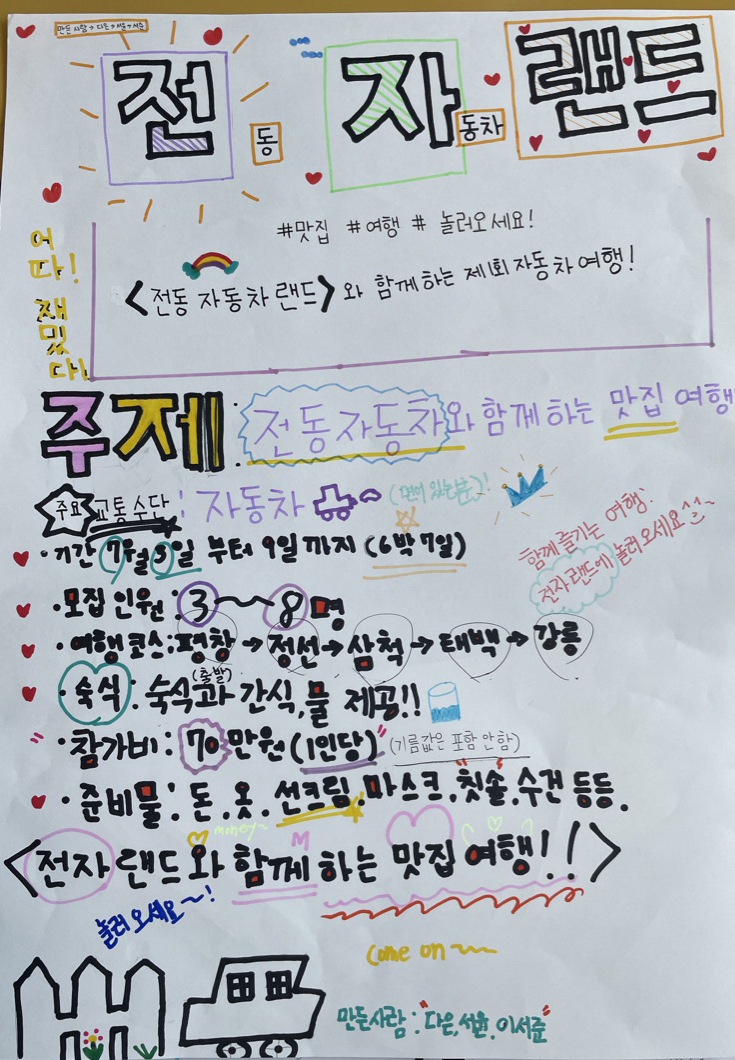 만든 사람 → 다은 → 서윤 → 서준
전 자 랜드
동 동차
#맛집 #여행 # 놀러오세요!
<전동 자동차 랜드>와 함께하는 제1회 자동차 여행!
어
따!
재
밌
다!
주제: 전동자동차와 함께 하는 맛집 여행
주요 교통 수단: 자동차 (면허 있는 분)!
·기간 7월 3일 부터 9일 까지 (6박 7일)
함께 즐기는 여행!
전자랜드에 놀러오세요^^~
·모집 인원: 3~8명
·여행코스: 평창 → 정선 → 삼척 → 태백 → 강릉
(출발)
·숙식: 숙식과 간식, 물 제공!!
·참가비: "70만원 (1인당)" (기름값은 포함 안 함)
·준비물: 돈, 옷, 선크림, 마스크, 칫솔, 수건 등등.
money~
<전자 랜드 와 함께 하는 맛집 여행!!>
놀러 오세요~!
come on ~~
만든사람: "다은, 서윤, 이서준"